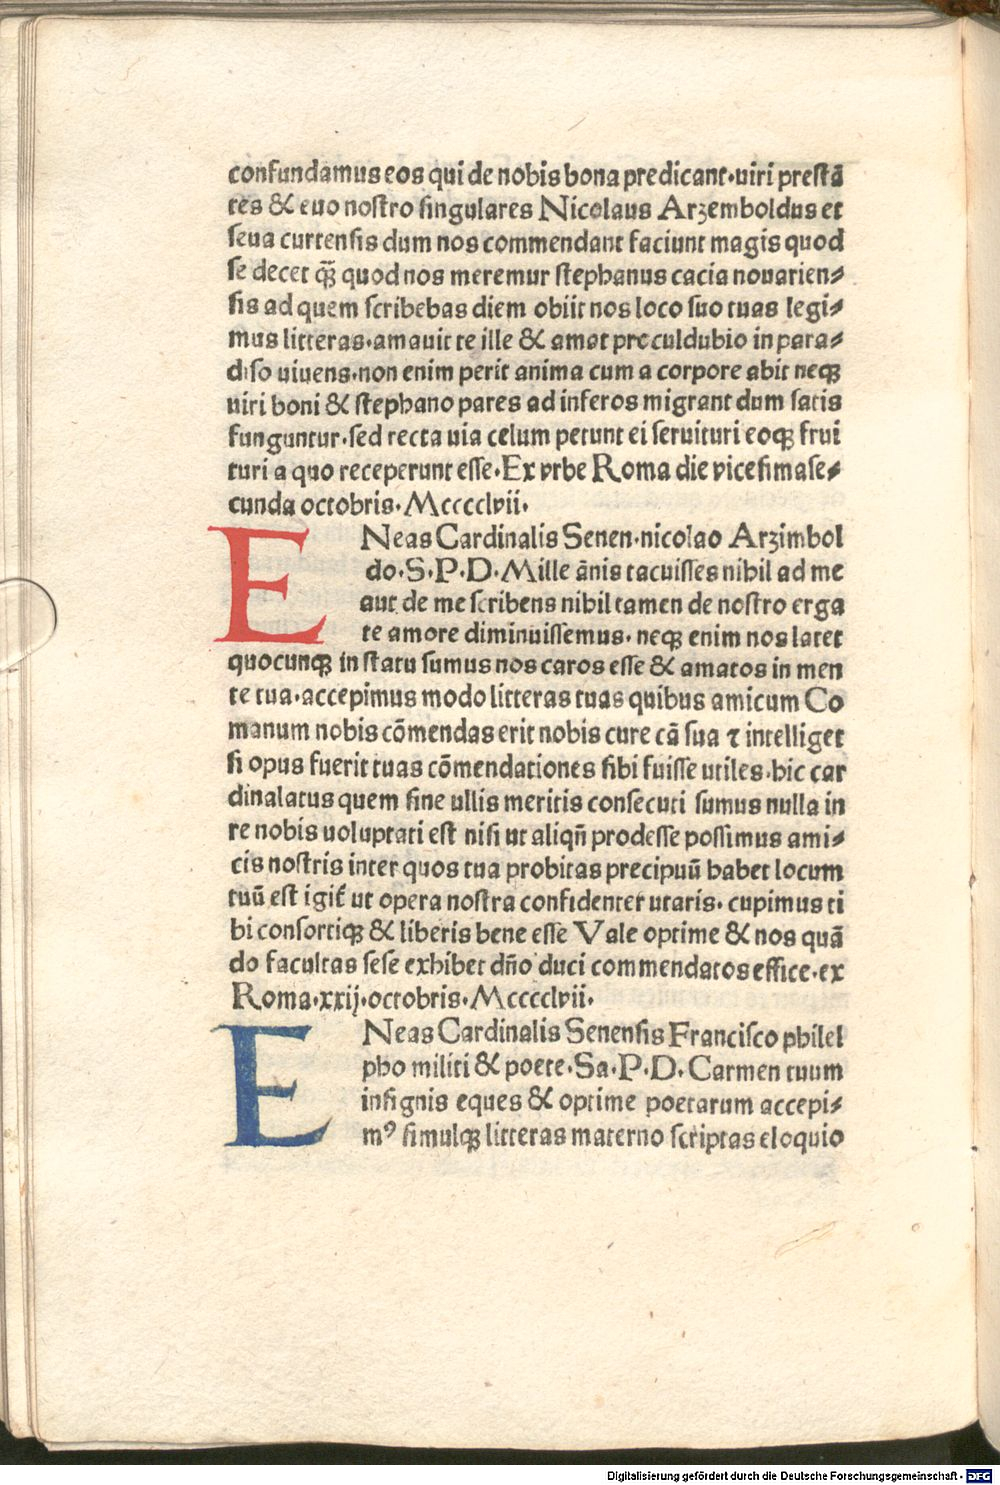 confundamus eos qui de nobis bona predicant·uiri prestā
tes & euo nostro singulares Nicolaus Arzemboldus et
seua curtensis dum nos commendant faciunt magis quod
se decet qꝫ̄ quod nos meremur stephanus cacia nouarien⸗
sis ad quem scribebas diem obiit nos loco suo tuas legi⸗
mus litteras·amauit te ille & amat proculdubio in para⸗
diso uiuens·non enim perit anima cum a corpore abit neqꝫ
uiri boni & stephano pares ad inferos migrant dum satis
funguntur·sed recta uia celum petunt ei seruituri eoqꝫ frui
turi a quo receperunt esse·Ex vrbe Roma die vicesimase⸗
cunda octobris·Mcccclvii·
ENeas Cardinalis Senen·nicolao Arzimbol
do·S·P·D·Mille ānis tacuisses nihil ad me
aut de me scribens nihil tamen de nostro erga
te amore diminuissemus·neqꝫ enim nos latet
quocunqꝫ in statu sumus nos caros esse & amatos in men
te tua·accepimus modo litteras tuas quibus amicum Co
manum nobis cōmendas erit nobis cure cā sua ⁊ intelliget
si opus fuerit tuas cōmendationes sibi fuisse utiles·hic car
dinalatus quem sine ullis meritis consecuti sumus nulla in
re nobis uoluptati est nisi ut aliqn̄ prodesse possimus ami⸗
cis nostris inter quos tua probitas precipuū habet locum
tuū est igit̄ ut opera nostra confidenter utaris·cupimus ti
bi consortiqꝫ & liberis bene esse Vale optime & nos quā
do facultas sese exhibet dn̄o duci commendatos effice·ex
Roma·xxij·octobris·Mcccclvii·
ENeas Cardinalis Senensis Francisco philel
pho militi & poete·Sa·P·D·Carmen tuum
insignis eques & optime poetarum accepi⸗
mꝰ simulqꝫ litteras materno scriptas eloquio
Digitalisierung gefördert durch die Deutsche Forschungsgemeinschaft - DFG